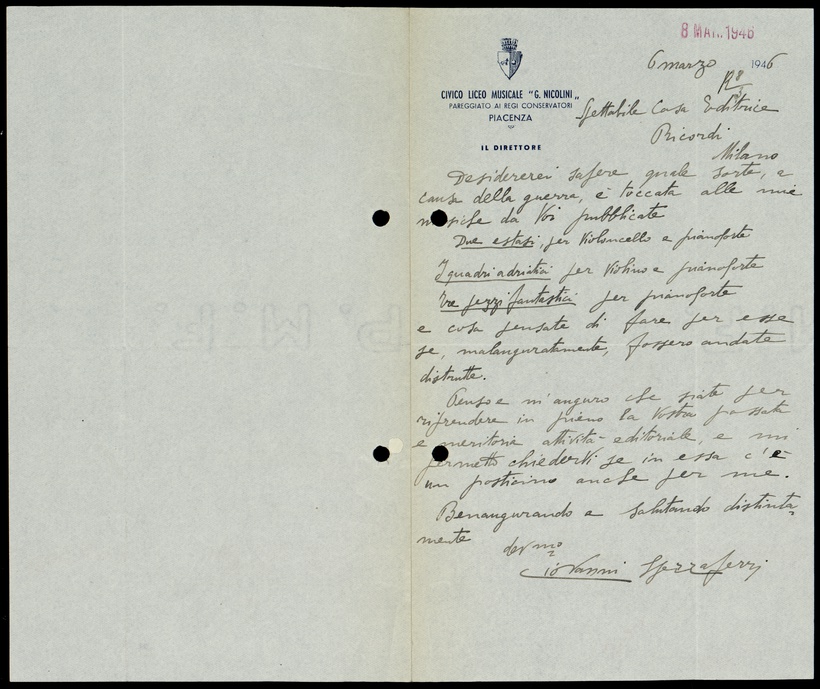 8 MAR. 1946
6 marzo 1946
CIVICO LICEO MUSICALE "G. NICOLINI"
PAREGGIATO AI REGI CONSERVATORI
PIACENZA
IL DIRETTORE
Spettabile Casa Editrice
Ricordi
Milano
Desidererei sapere quale sorte, a
causa della guerra, è toccata alle mie
musiche da Voi pubblicate
Due estasi, per Violoncello e pianoforte
I quadri adriatici per Violino e pianoforte
Tre pezzi fantastici per pianoforte
e cosa pensate di fare per esse
se, malauguratamente, fossero andate
distrutte.
Penso e m'auguro che siate per
riprendere in pieno la Vostra passata
e meritoria attività editoriale, e mi
permetto chiederVi se in essa c'è
un posticino anche per me.
Benaugurando e salutando distinta-
mente
dev mo
Giovanni Spezzaferri